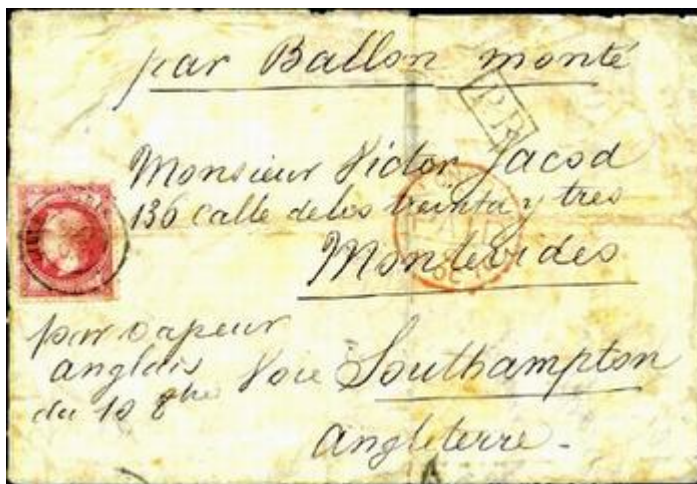 par Ballon monté
P.P.
Monsieur Victor Jacod
136 Calle de los treinta y tres
Montevideo
par vapeur
anglais
du 10 8bre Voie Southampton
Angleterre -